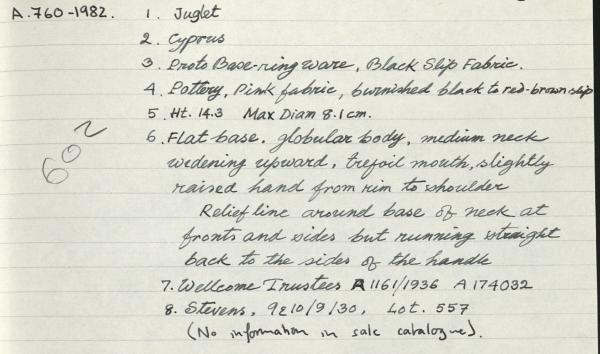 A.760-1982. 1. Juglet
2. Cyprus
3. Proto Base-ring ware, Black Slip Fabric.
4. Pottery, Pink fabric, burnished black to red-brown slip
5. Ht. 14.3 Max Diam 8.1cm.
6. Flat base, globular body, medium neck
widening upward, trefoil mouth, slightly
raised hand from rim to shoulder
Relief line around base of neck at
fronts and sides but running straight
back to the sides of the handle
7. Wellcome Trustees A1161/1936 A174032
8. Stevens, 9&10/9/30, Lot. 557
(No information in sale catalogue).
602